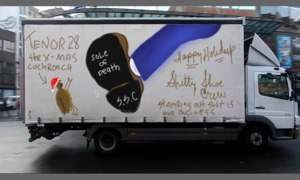 TENOR 28
the X-MAS
COCKROACH
SOLE
OF
DEATH
S.S.C
Happy Holidays
Shitty Shoe
Crew
stomping out shit is
our business.